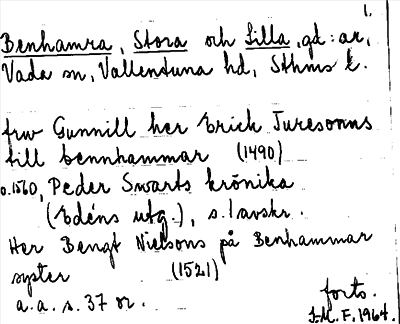 1.
Benhamra, Stora och Lilla, gd:ar,
Vada sn, Vallentuna hd, Sthms l.
frw Gunnill her Erick Turesonns
till bennhammar (1490)
o.1560, Peder Swarts krönika
(Edéns utg.), s. 1 avskr.
Her Bengt Nielsons på Benhammar
syster (1521)
a.a. s. 37 or.
forts.
I.M.F. 1964.